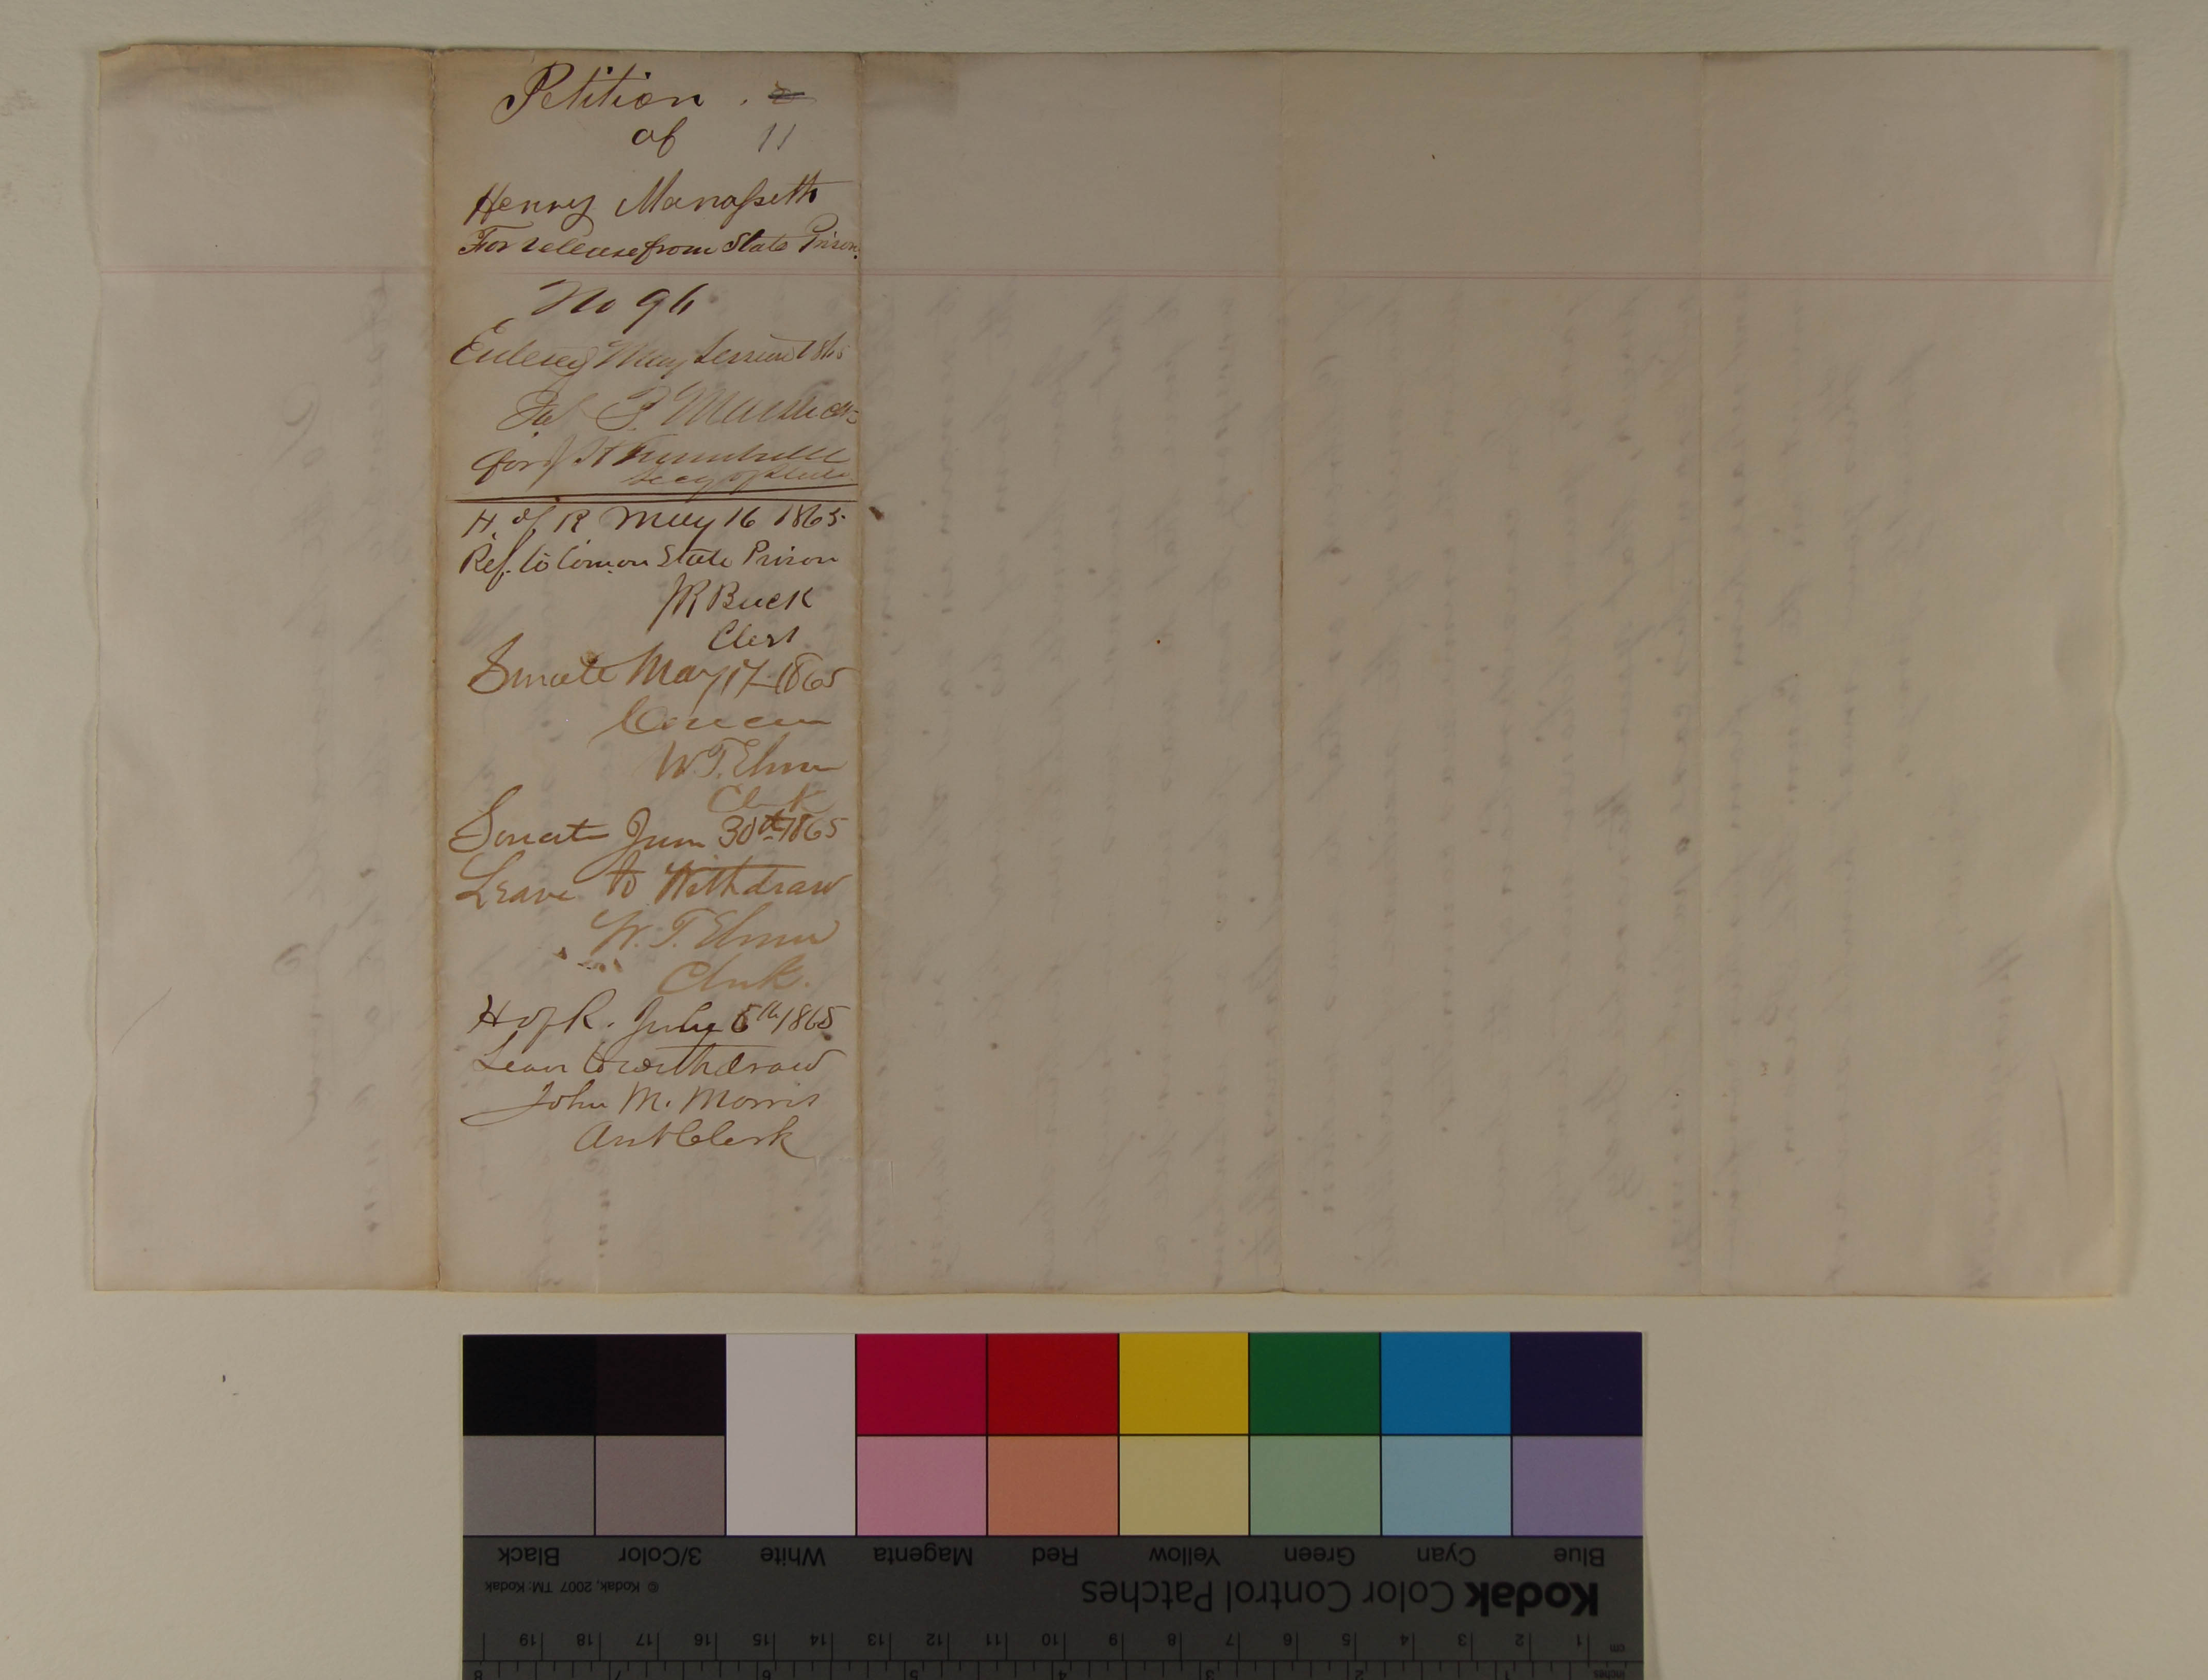 Petition . 2
of 11
Henry Manasseth
For release from State Prison.
No 96
Entered May Session 1865
for J H Trumbull
Secy of State
H. of R May 16 1865.
Ref. to Com. on State Prison
JR Buck
Clerk
Senate May 17 1865
Concur
W.T. Elmer
Clerk
Senate June 30th 1865
Leave to Withdraw
W. T. Elmer
Clerk.
H of R. July 6th 1865
Leave to withdraw
John M. Morris
Asst Clerk
Black 3/Color White Magenta Red Yellow Green Cyan Blue
© Kodak, 2007 TM: Kodak
Kodak Color Control Patches
cm 1 2 3 4 5 6 7 8 9 10 11 12 13 14 15 16 17 18 19
inches 1 2 3 4 5 6 7 8